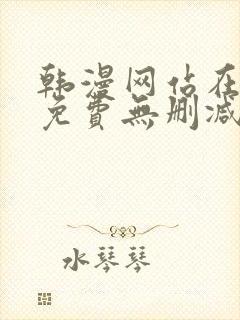 韩漫网站在
免費無删减
水琴琴